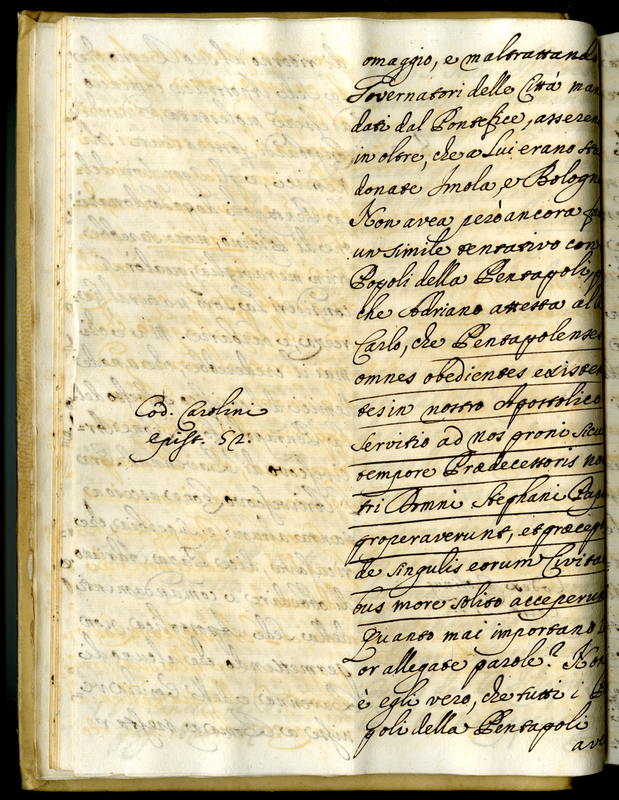 omaggio, e maltrattando
Governatori delle Città man
dati dal Pontefice, asseren
in oltre, che a Lui erano sta
donate Imola, e Bologn
Non avea però ancora
un simile tentativo con
Popoli della Pentapoli, p
che Adriano attesta al
Carlo, che Pentapolenses
omnes obedientes existen
tes in nostro Apostolico
servitio ad nos proni sicu
tempore Prædecessoris nos
tri Domni Stephani Pap
properaverunt, et præcep
de singulis eorum Civita
bus more solito acceperun
Quanto mai importano l
or allegate parole? Non
è egli vero, che tutti i P
poli della Pentapoli
ave
Cod. Carolini
epist. 52.